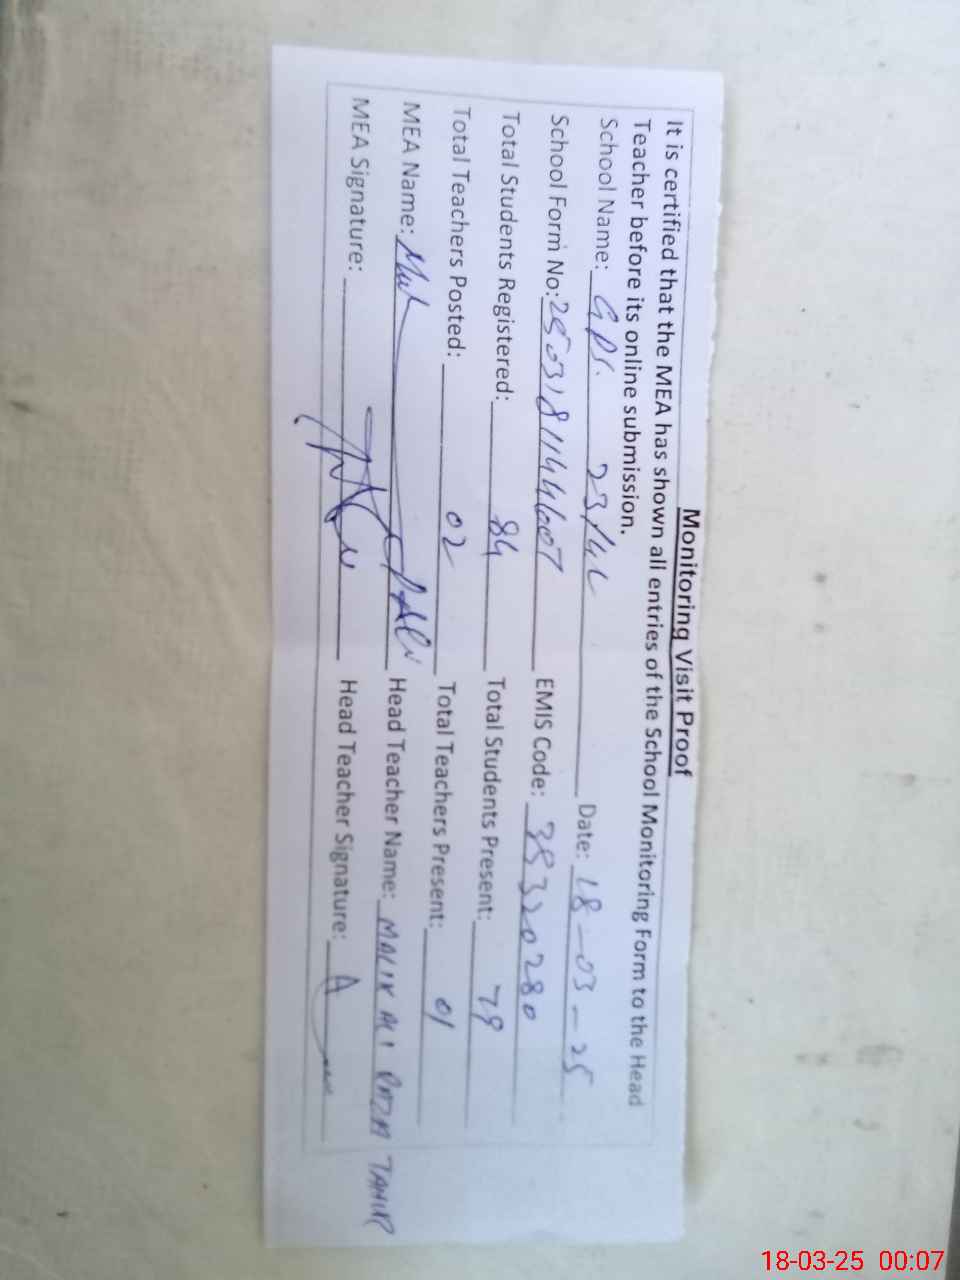 Monitoring Visit Proof
It is certified that the MEA has shown all entries of the School Monitoring Form to the Head
Teacher before its online submission.
School Name: GPS. 23/4L Date: 18-03-25
School Form No: EMIS Code: 39320280
Total Students Registered: 84 Total Students Present: 79
Total Teachers Posted: 02 Total Teachers Present: 01
MEA Name: Head Teacher Name: MALIK ALI RAZA TAHIR
MEA Signature: Head Teacher Signature:
18-03-25 00:07